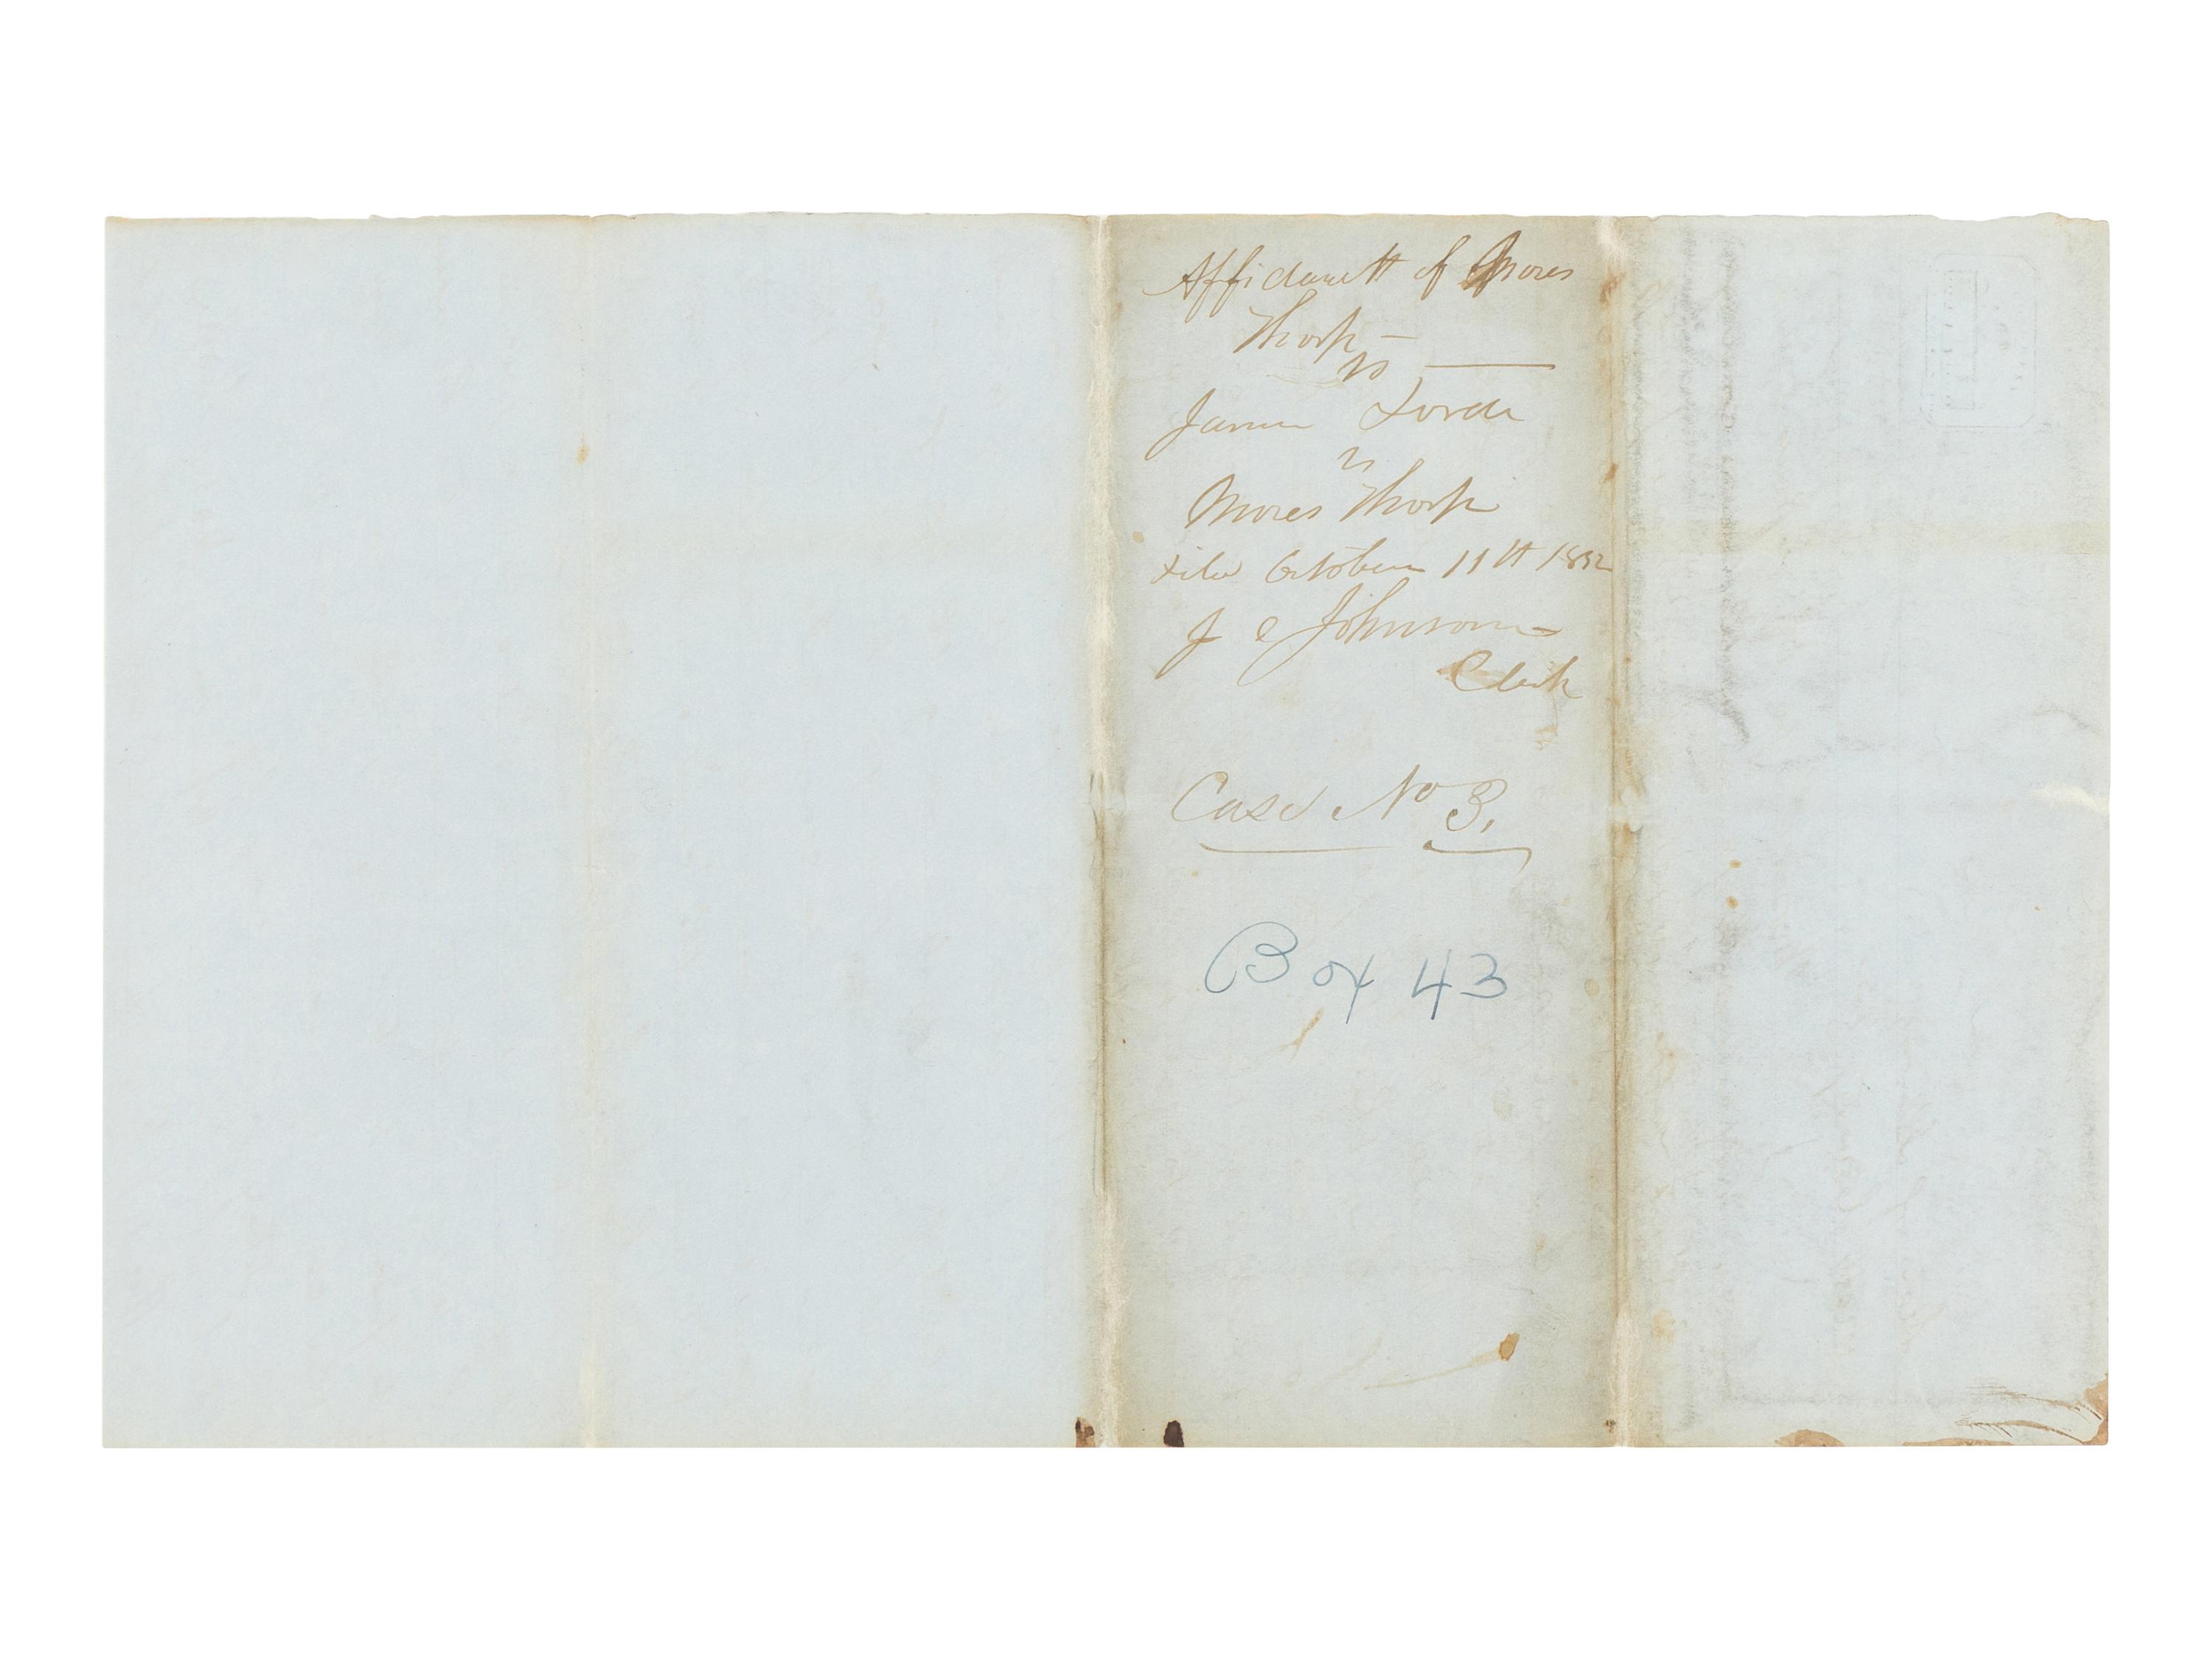 Affidavitt of Moses
Thorp —
vs
James
vs
Moses Thorp
File October 11th 1852
J C Johnson
Clerk
Case No 3.
Box 43